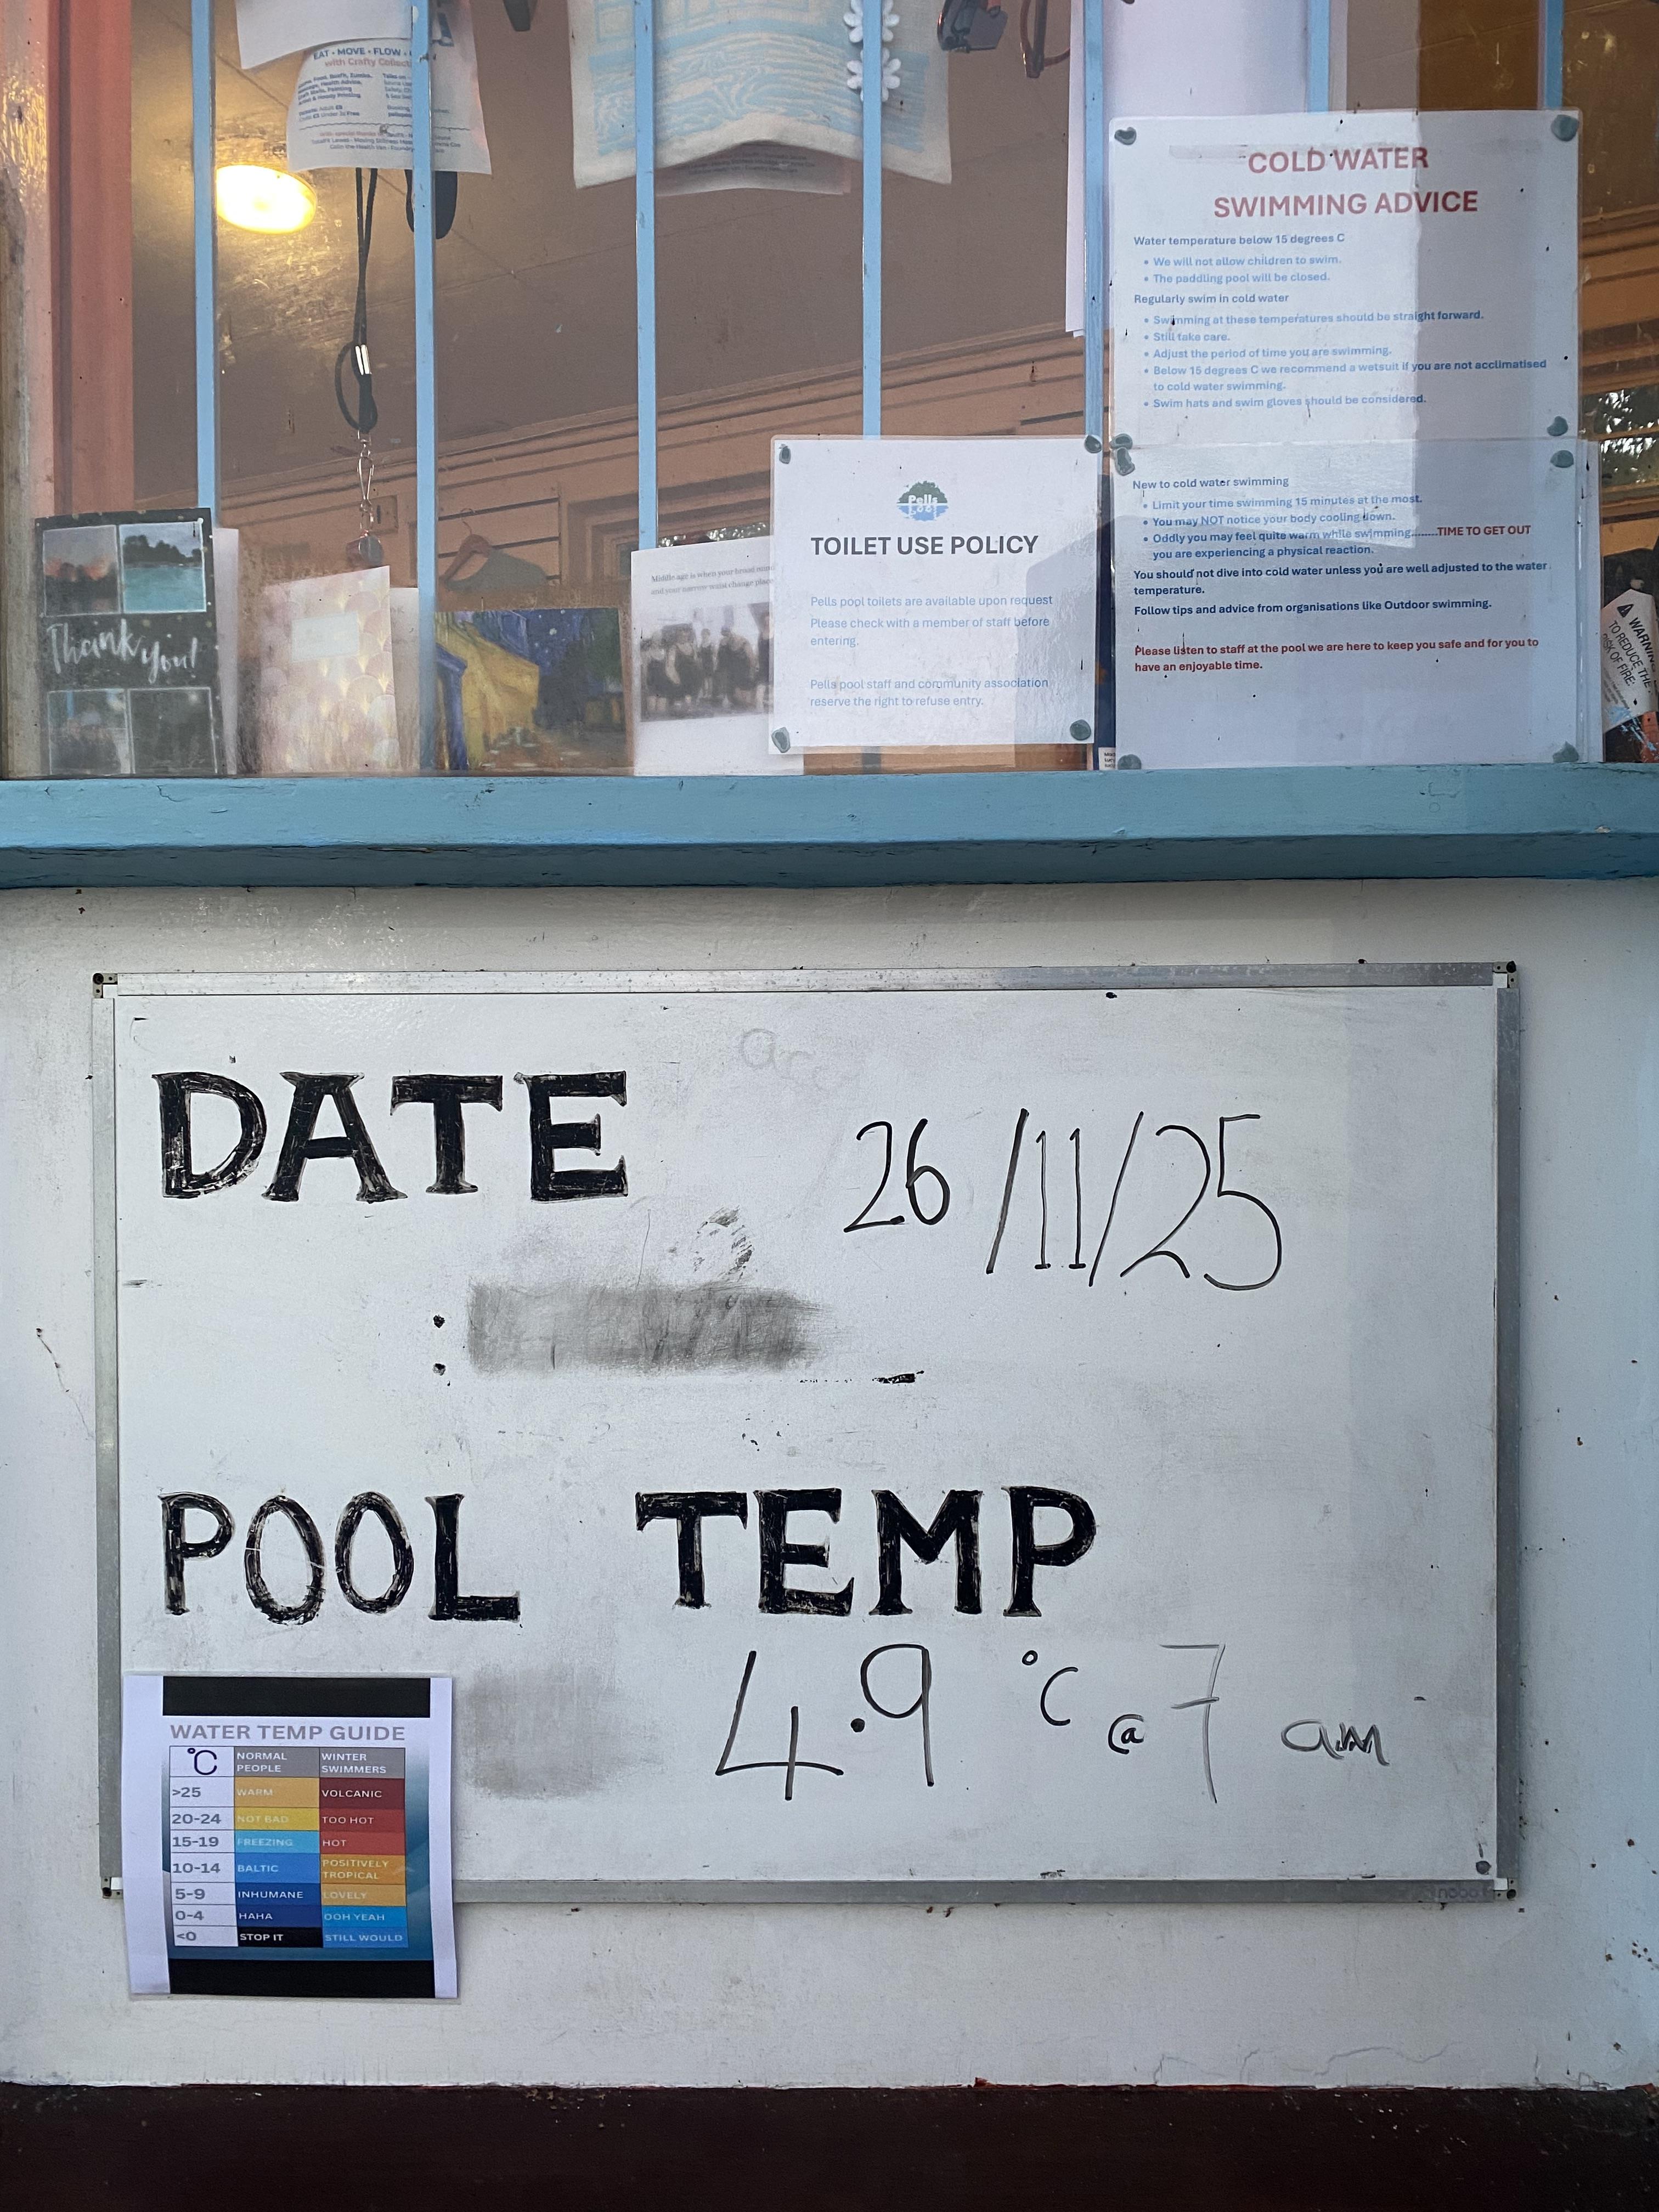 EAT • MOVE • FLOW •
with Crafty Collect
Thank you!
Middle age is when your broad
and your narrow waist change place
Pells
Pool
TOILET USE POLICY
Pells pool toilets are available upon request
Please check with a member of staff before
entering.
Pells pool staff and community association
reserve the right to refuse entry.
COLD WATER
SWIMMING ADVICE
Water temperature below 15 degrees C
• We will not allow children to swim.
• The paddling pool will be closed.
Regularly swim in cold water
• Swimming at these temperatures should be straight forward.
• Still take care.
• Adjust the period of time you are swimming.
• Below 15 degrees C we recommend a wetsuit if you are not acclimatised
to cold water swimming.
• Swim hats and swim gloves should be considered.
New to cold water swimming
• Limit your time swimming 15 minutes at the most.
• You may NOT notice your body cooling down.
• Oddly you may feel quite warm while swimming........TIME TO GET OUT
you are experiencing a physical reaction.
You should not dive into cold water unless you are well adjusted to the water
temperature.
Follow tips and advice from organisations like Outdoor swimming.
Please listen to staff at the pool we are here to keep you safe and for you to
have an enjoyable time.
WARNING
TO REDUCE THE
RISK OF FIRE:
DATE 26/11/25
:
POOL TEMP
4.9 °C @ 7 am
WATER TEMP GUIDE
°C NORMAL PEOPLE WINTER SWIMMERS
>25 WARM VOLCANIC
20-24 NOT BAD TOO HOT
15-19 FREEZING HOT
10-14 BALTIC POSITIVELY TROPICAL
5-9 INHUMANE LOVELY
0-4 HAHA OOH YEAH
<0 STOP IT STILL WOULD
nobo